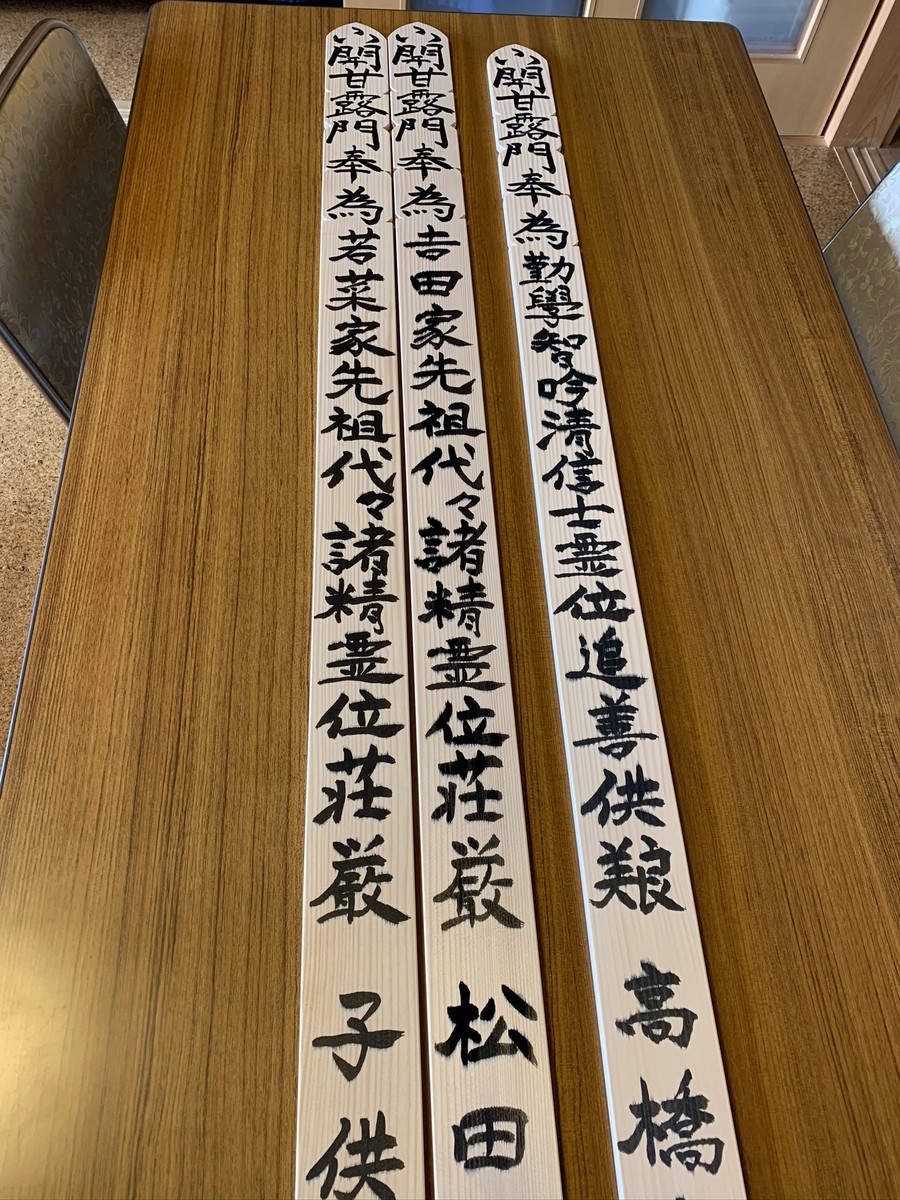 開甘露門奉為勤學智吟清信士霊位追善供養 高橋
開甘露門奉為𠮷田家先祖代々諸精霊位荘厳 松田
開甘露門奉為若菜家先祖代々諸精霊位荘厳 子供